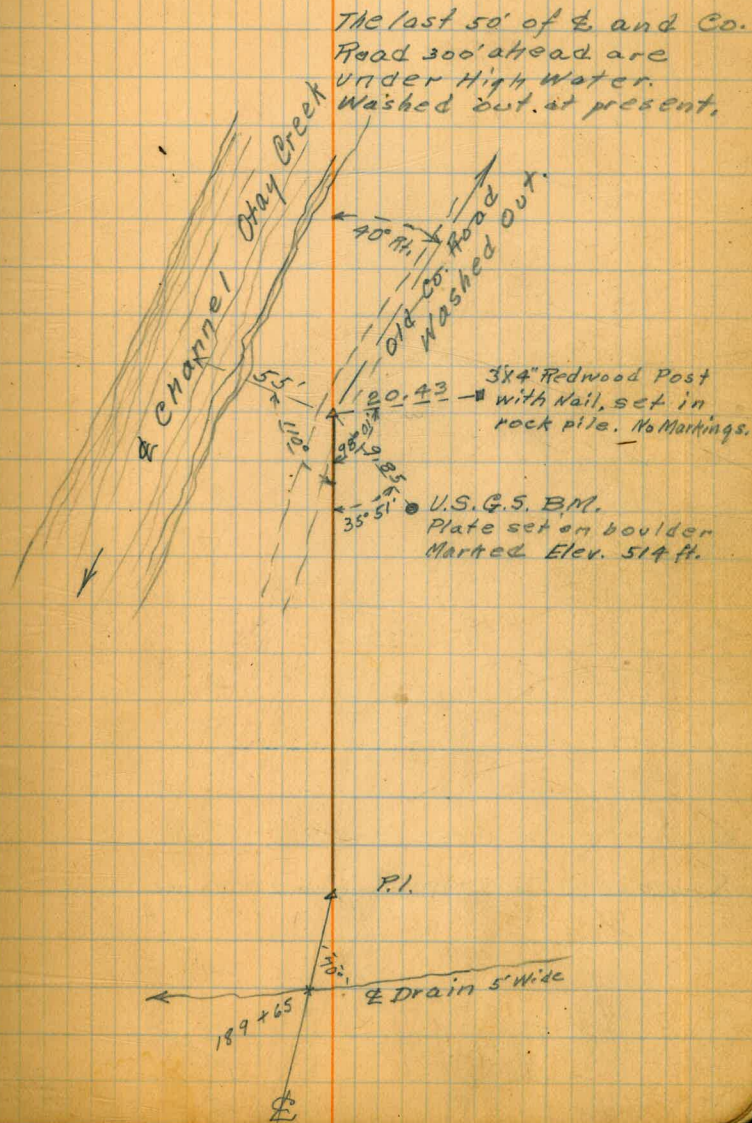 The last 50' of ℄ and Co.
Road 300' ahead are
under High Water.
Washed out at present.
℄ Channel Otay Creek
40° Rt.
Old Co. Road
Washed Out.
55'
110°
20.43
3"X4" Redwood Post
with Nail, set in
rock pile. No Markings.
19.85
35° 51'
U.S.G.S. B.M.
Plate set on boulder
Marked Elev. 514 ft.
P.I.
℄ Drain 5' Wide
189+65
℄